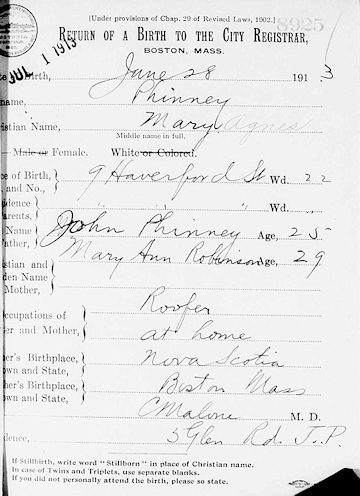 [Under provisions of Chap. 29 of Revised Laws, 1902.]
8925
RETURN OF A BIRTH TO THE CITY REGISTRAR,
BOSTON, MASS.
JUL 1 1913
Birth, June 28 1913
name, Phinney
istian Name, Mary Agnes
Middle name in full.
Male or Female. White or Colored.
ce of Birth, and No., 9 Haverford St Wd. 22
idence arents, " " " Wd. "
Name ather, John Phinney Age, 25
stian and den Name Mother, Mary Ann Robinson Age, 29
ccupations of er and Mother, Roofer
at home
er's Birthplace, own and State, Nova Scotia
her's Birthplace, own and State, Boston Mass
C Malone M. D.
dence, 5 Glen Rd. J. P.
If Stillbirth, write word "Stillborn" in place of Christian name.
In case of Twins and Triplets, use separate blanks.
If you did not personally attend the birth, please so state.